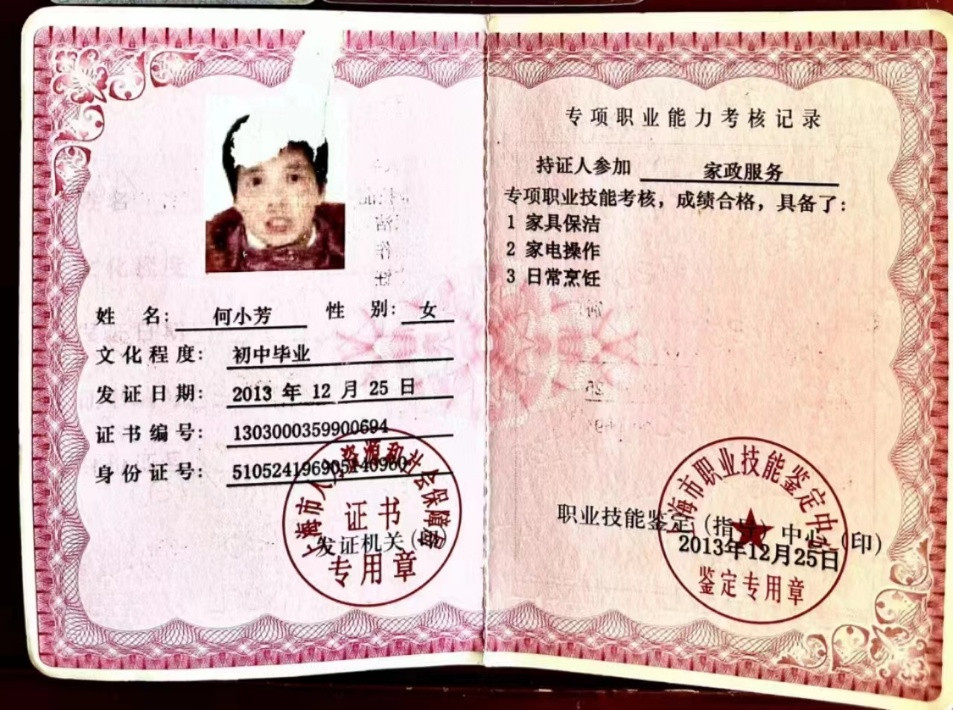 姓 名: 何小芳 性 别: 女
文化程度: 初中毕业
发证日期: 2013 年 12 月 25 日
证书编号: 1303000359900694
身份证号:
发证机关(印)
上海市人力资源和社会保障局
证书
专用章
专项职业能力考核记录
持证人参加 家政服务
专项职业技能考核,成绩合格,具备了:
1 家具保洁
2 家电操作
3 日常烹饪
职业技能鉴定(指导)中心(印)
2013年12月25日
上海市职业技能鉴定中心
鉴定专用章